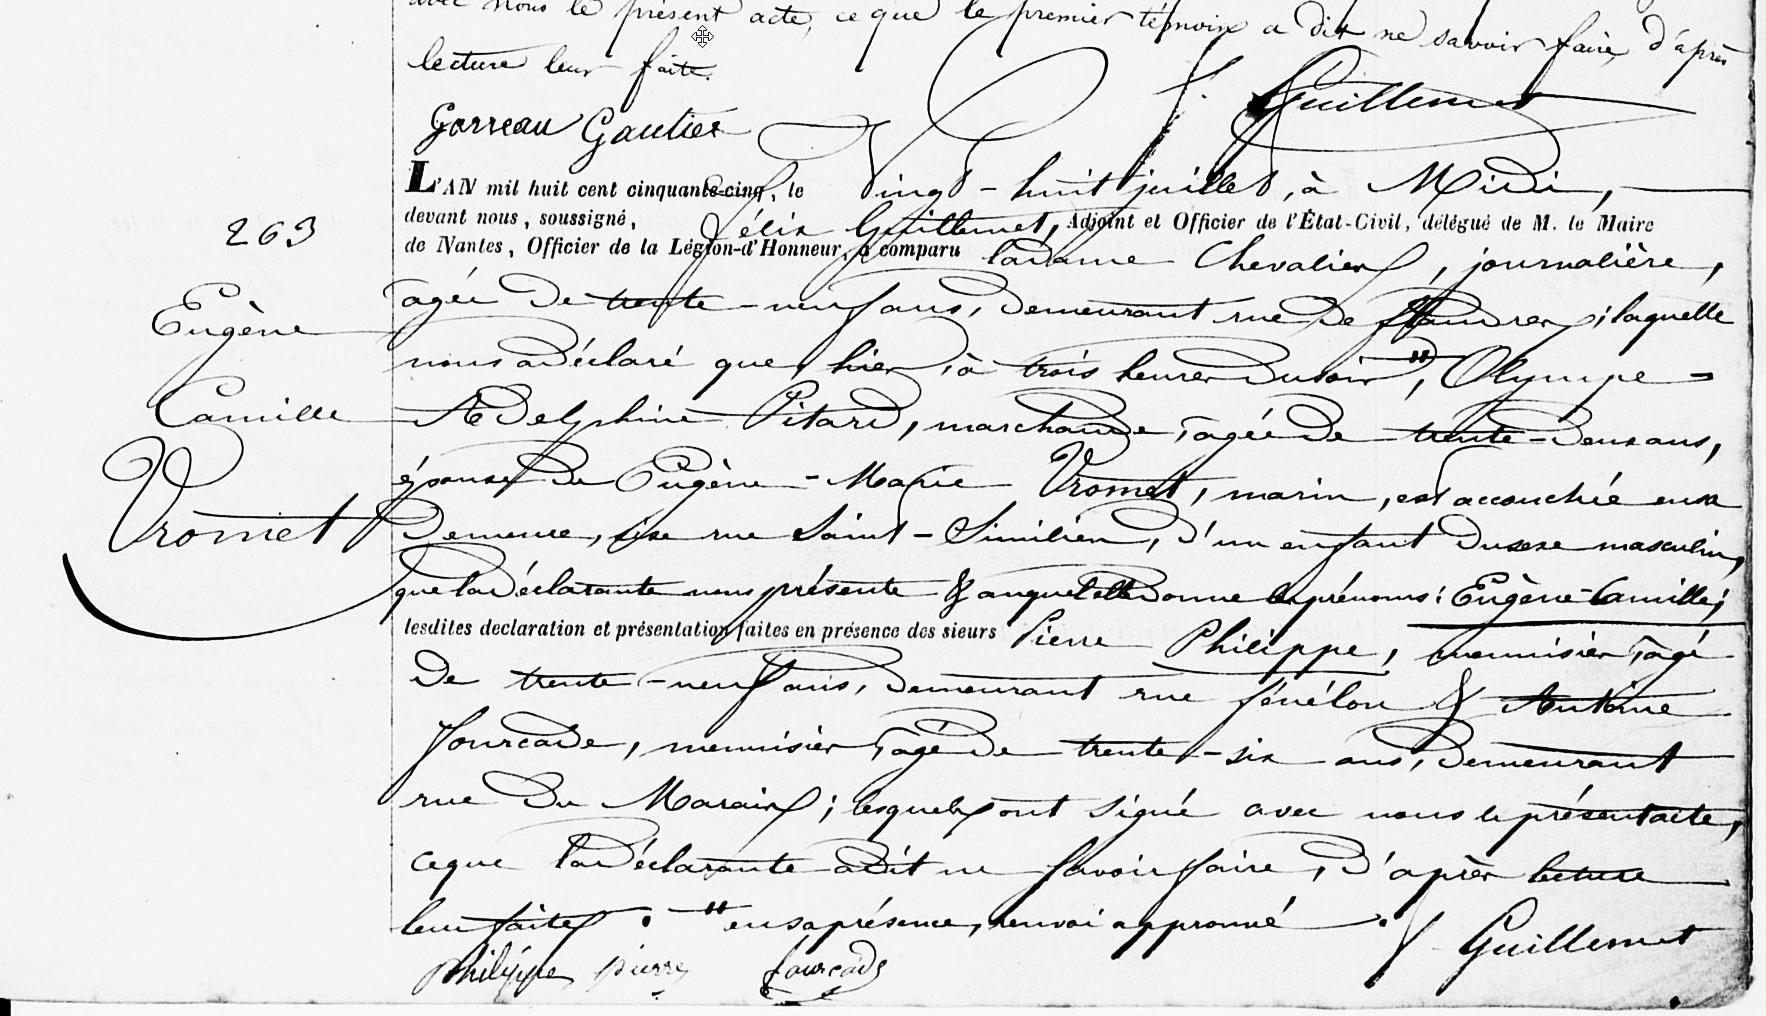 avec nous le présent acte, ce que le premier témoin a dit ne savoir faire, d'après
lecture leur faite.
Gorreau Gautier F. Guillemet
L'AN mil huit cent cinquante-cinq, le vingt-huit juillet, à Midi,
devant nous, soussigné, Félix Guillemet, Adjoint et Officier de l'État-Civil, délégué de M. le Maire
de Nantes, Officier de la Légion-d'Honneur, a comparu la dame Chevalier, journalière,
263
âgée de trente-neuf ans, demeurant rue de Flandres; laquelle
Eugène
nous a déclaré que hier, à trois heures du soir ", Olympe
Camille
Adelphine Pitard, marchande, âgée de trente-deux ans,
épouse de Eugène-Marie Vromet, marin, est accouchée en sa
Vromet
demeure, sise rue Saint-Similien, d'un enfant du sexe masculin,
que la déclarante nous présente & auquel elle donne les prénoms: Eugène-Camille;
lesdites declaration et présentation faites en présence des sieurs Pierre Philippe, menuisier, âgé
de trente-neuf ans, demeurant rue fénélon & Antoine
Fourcade, menuisier, âgé de trente-six ans, demeurant
rue du Marais; lesquels ont signé avec nous le présent acte,
ce que la déclarante a dit ne savoir faire, d'après lecture
leur faite. " en sa présence, renvoi approuvé. F. Guillemet
Philippe pierre fourcade